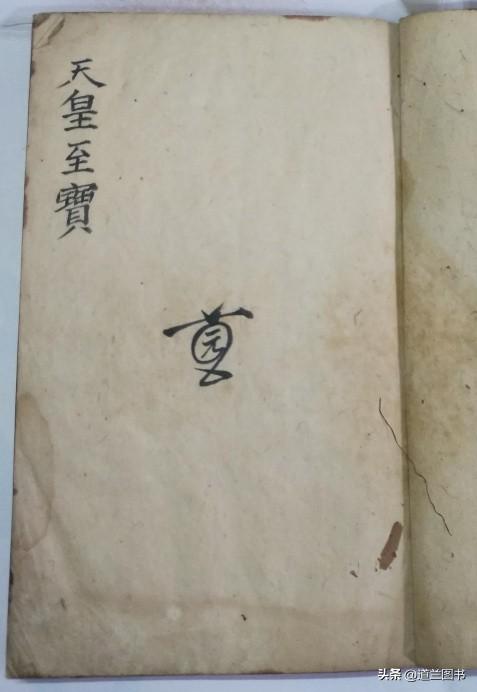 天皇至寶
头条 @道兰图书